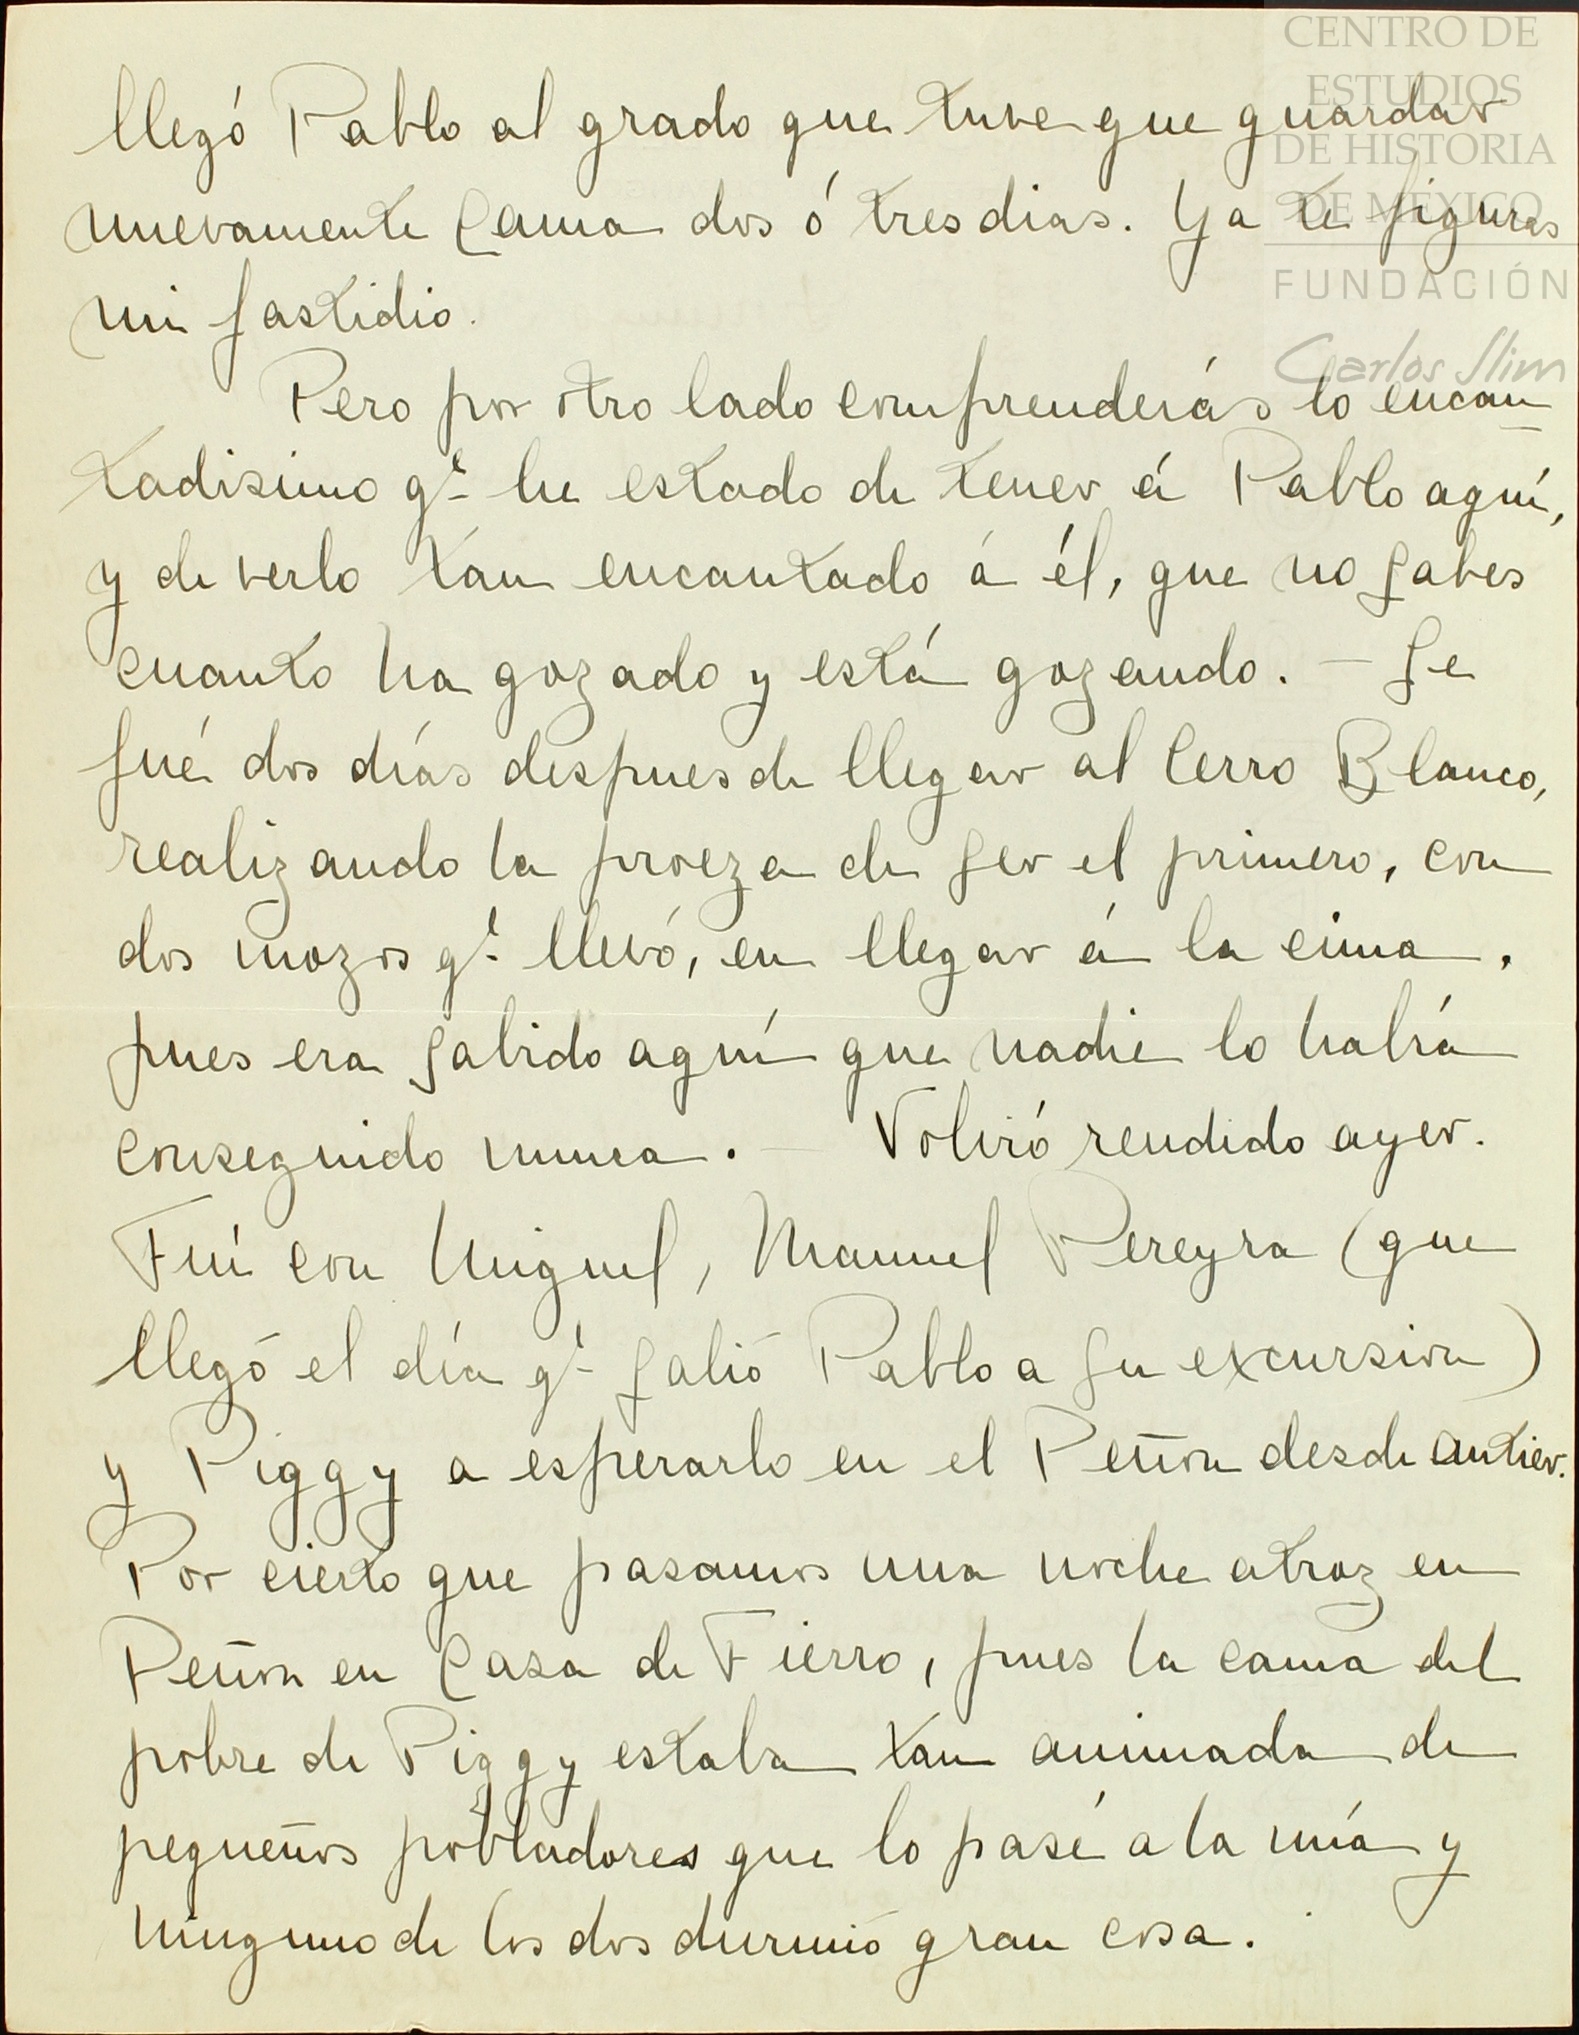 CENTRO DE
ESTUDIOS
DE HISTORIA
DE MÉXICO
FUNDACIÓN
Carlos Slim
llegó Pablo al grado que tuve que guardar
nuevamente cama dos ó tres dias. Ya te figuras
mi fastidio.
Pero por otro lado comprenderás lo encan
tadisimo qe he estado de tener á Pablo aquí,
y de verlo tan encantado á él, que no sabes
cuanto ha gozado y está gozando. — Se
fué dos días despues de llegar al Cerro Blanco,
realizando la proeza de ser el primero, con
dos mozos qe llevó, en llegar á la cima,
pues era sabido aquí que nadie lo había
conseguido nunca. — Volvió rendido ayer.
Fuí con Miguel, Manuel Pereyra (que
llegó el día qe salió Pablo a su excursion)
y Piggy a esperarlo en el Peñon desde antier.
Por cierto que pasamos una noche atroz en
Peñon en casa de Fierro, pues la cama del
pobre de Piggy estaba tan animada de
pequeños pobladores que lo pasé a la mía y
ninguno de los dos durmió gran cosa.